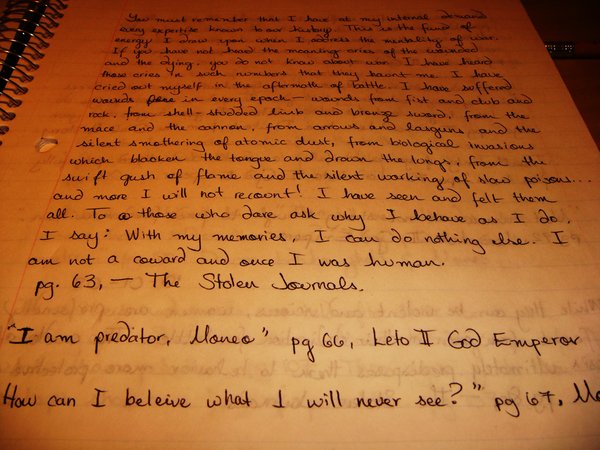 You must remember that I have at my internal demand
every expertise known to our history. This is the fund of
energy I draw upon when I address the mentality of war.
If you have not heard the moaning cries of the wounded
and the dying, you do not know about war. I have heard
those cries in such numbers that they haunt me. I have
cried out myself in the aftermath of battle. I have suffered
wounds in every epoch — wounds from fist and club and
rock, from shell-studded limb and bronze sword, from the
mace and the cannon, from arrows and lasguns and the
silent smothering of atomic dust, from biological invasions
which blacken the tongue and drown the lungs, from the
swift gush of flame and the silent working of slow poisons...
and more I will not recount! I have seen and felt them
all. To those who dare ask why I behave as I do,
I say: With my memories, I can do nothing else. I
am not a coward and once I was human.
pg. 63, — The Stolen Journals.
"I am predator, Moneo" pg 66, Leto II God Emperor
How can I beleive what I will never see?" pg 67, Mo